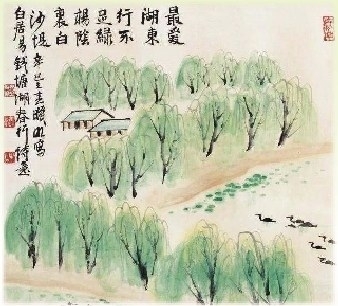 最爱
湖東
行不
足綠
楊陰
裏白
沙堤辛巳春曉明寫
白居易錢塘湖春行詩意